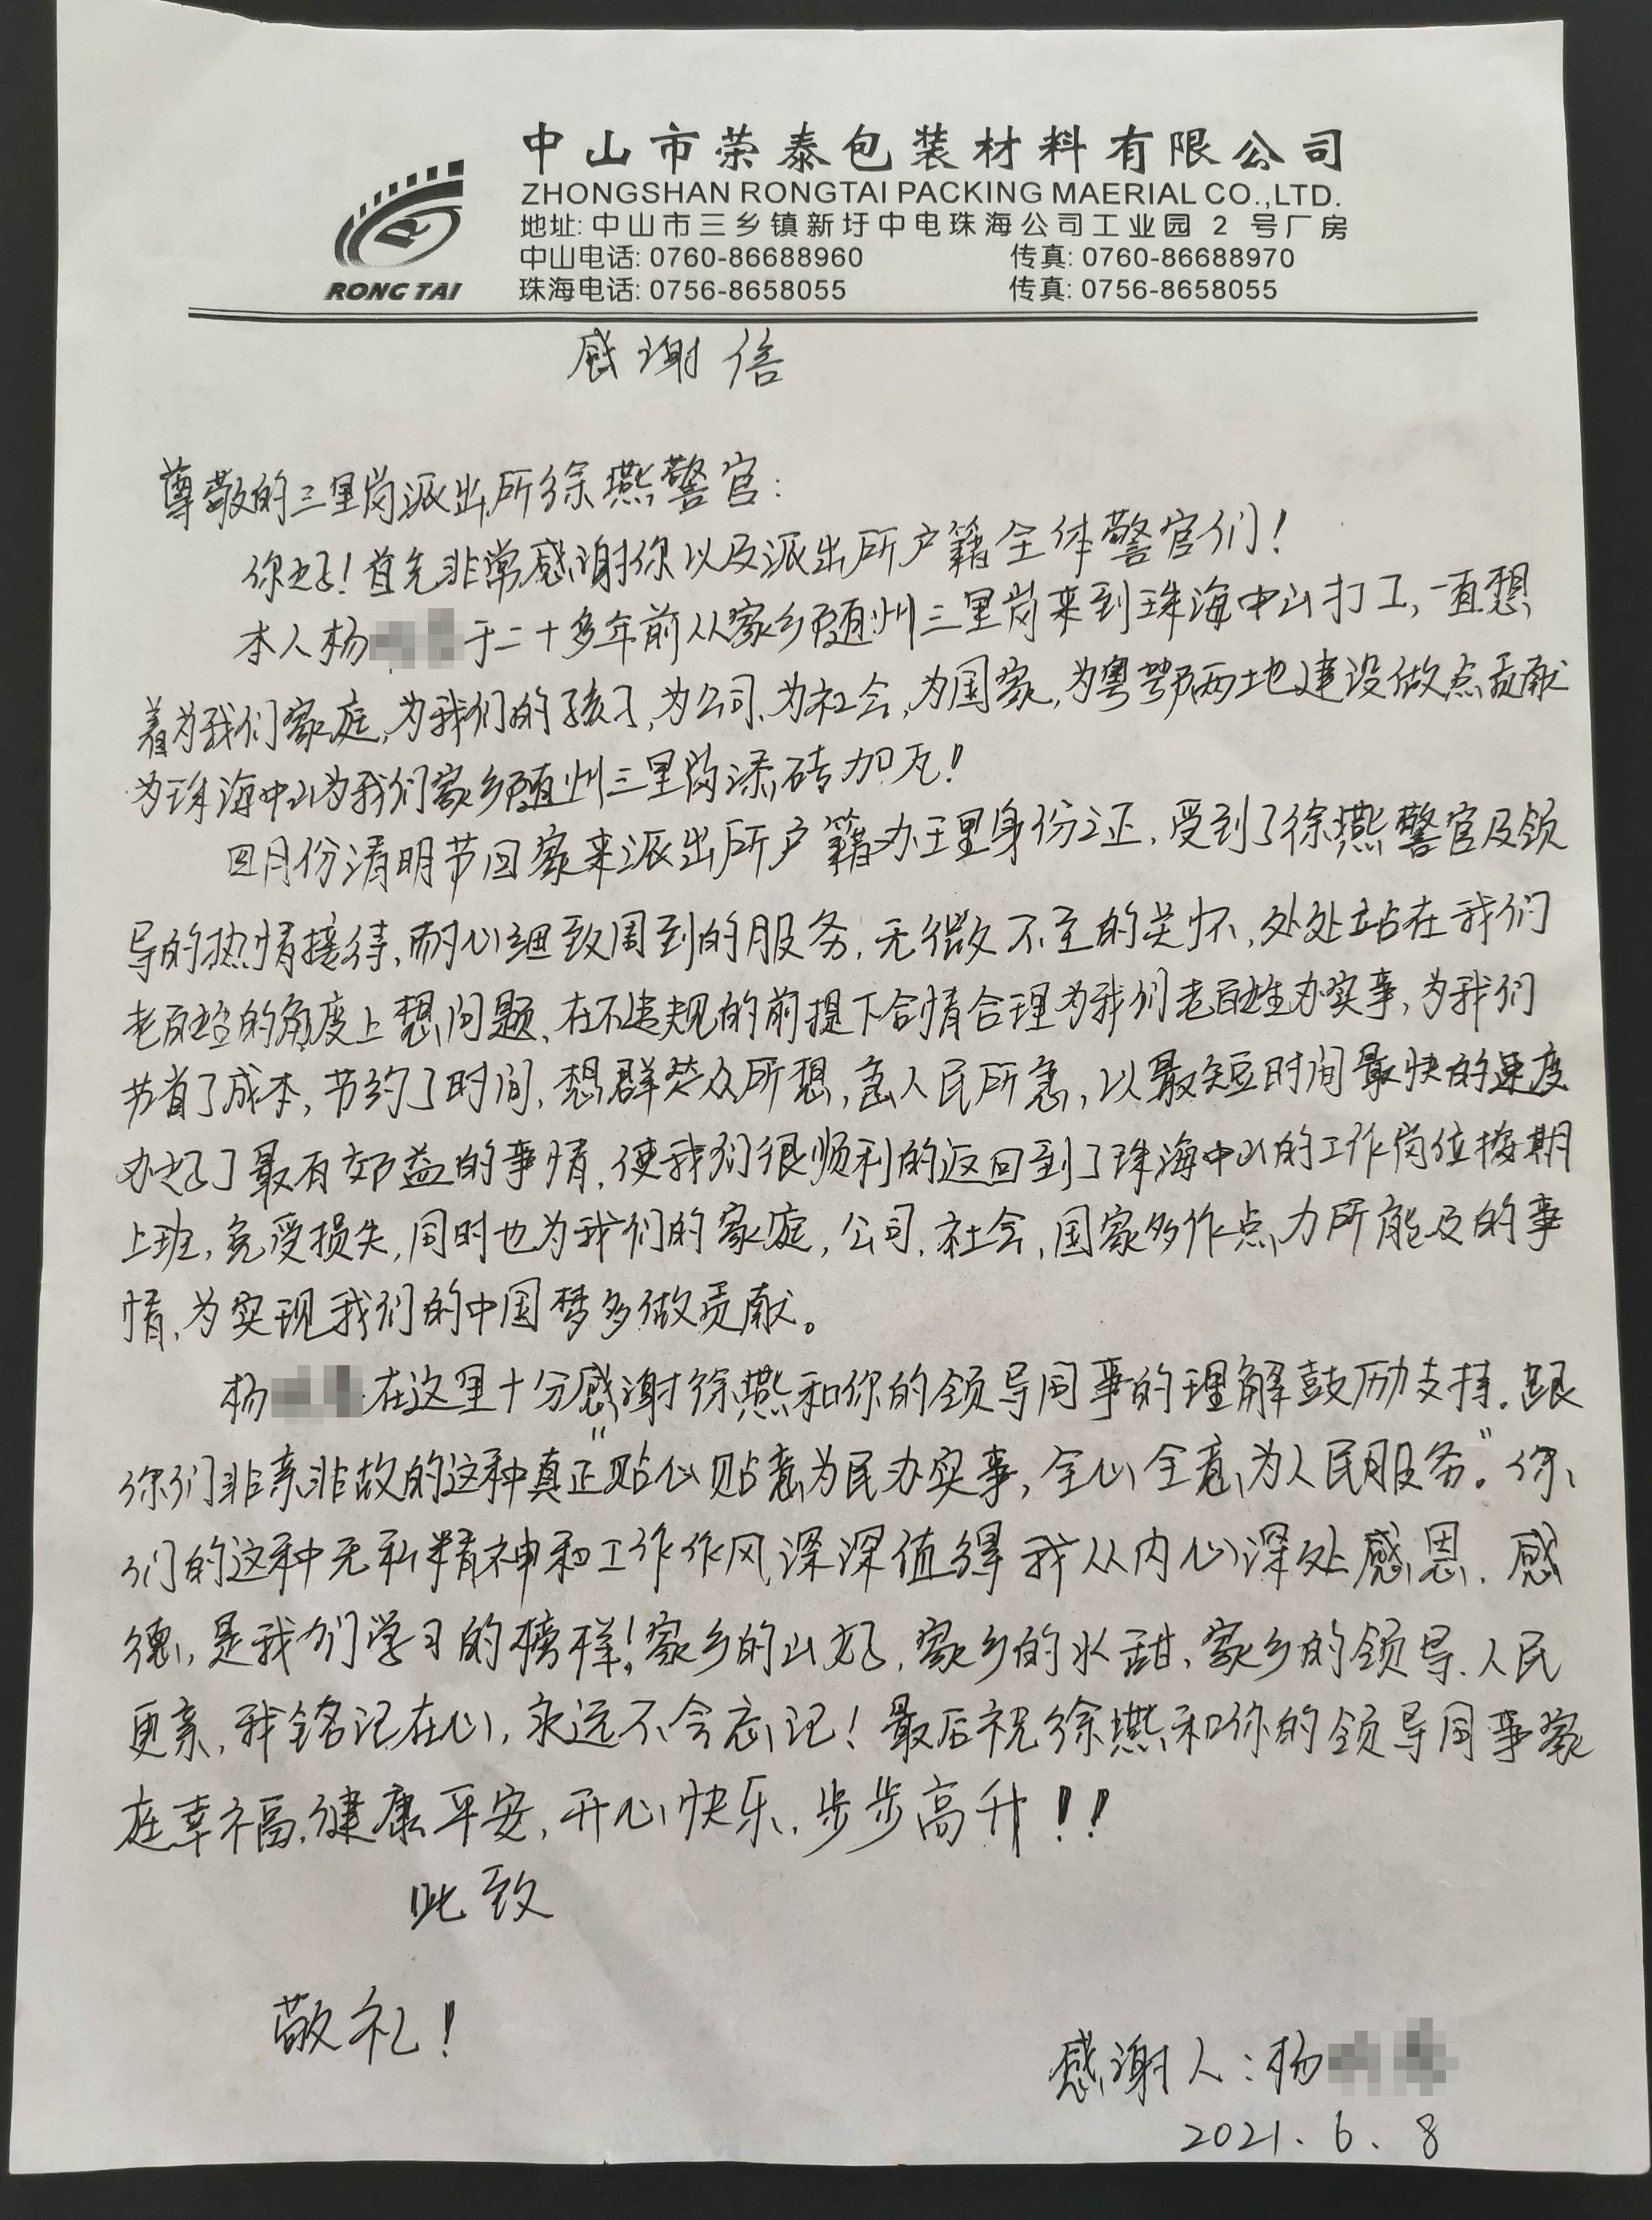 中山市荣泰包装材料有限公司
ZHONGSHAN RONGTAI PACKING MAERIAL CO.,LTD.
地址:中山市三乡镇新圩中电珠海公司工业园 2 号厂房
中山电话: 0760-86688960 传真: 0760-86688970
珠海电话: 0756-8658055 传真: 0756-8658055
RONG TAI
感谢信
尊敬的三里岗派出所徐燕警官:
你好!首先非常感谢你以及派出所户籍全体警官们!
本人杨于二十多年前从家乡随州三里岗来到珠海中山打工,一直想
着为我们家庭,为我们的孩子,为公司、为社会,为国家,为粤鄂两地建设做点贡献
为珠海中山为我们家乡随州三里岗添砖加瓦!
四月份清明节回家来派出所户籍办理身份证,受到了徐燕警官及领
导的热情接待,耐心细致周到的服务,无微不至的关怀,处处站在我们
老百姓的角度上想问题、在不违规的前提下合情合理为我们老百姓办实事,为我们
节省了成本,节约了时间,想群众所想,急人民所急,以最短时间最快的速度
办好了最有效益的事情,使我们很顺利的返回到了珠海中山的工作岗位按期
上班,免受损失,同时也为我们的家庭,公司,社会,国家多作点力所能及的事
情,为实现我们的中国梦多做贡献。
杨在这里十分感谢徐燕和你的领导同事的理解鼓励支持。跟
你们非亲非故的这种真正"贴心贴意为民办实事,全心全意为人民服务"。你
们的这种无私精神和工作作风,深深值得我从内心深处感恩、感
德,是我们学习的榜样!家乡的山好,家乡的水甜、家乡的领导、人民
更亲,我铭记在心,永远不会忘记!最后祝徐燕和你的领导同事家
庭幸福,健康平安,开心快乐,步步高升!!
此致
敬礼!
感谢人:杨
2021.6.8